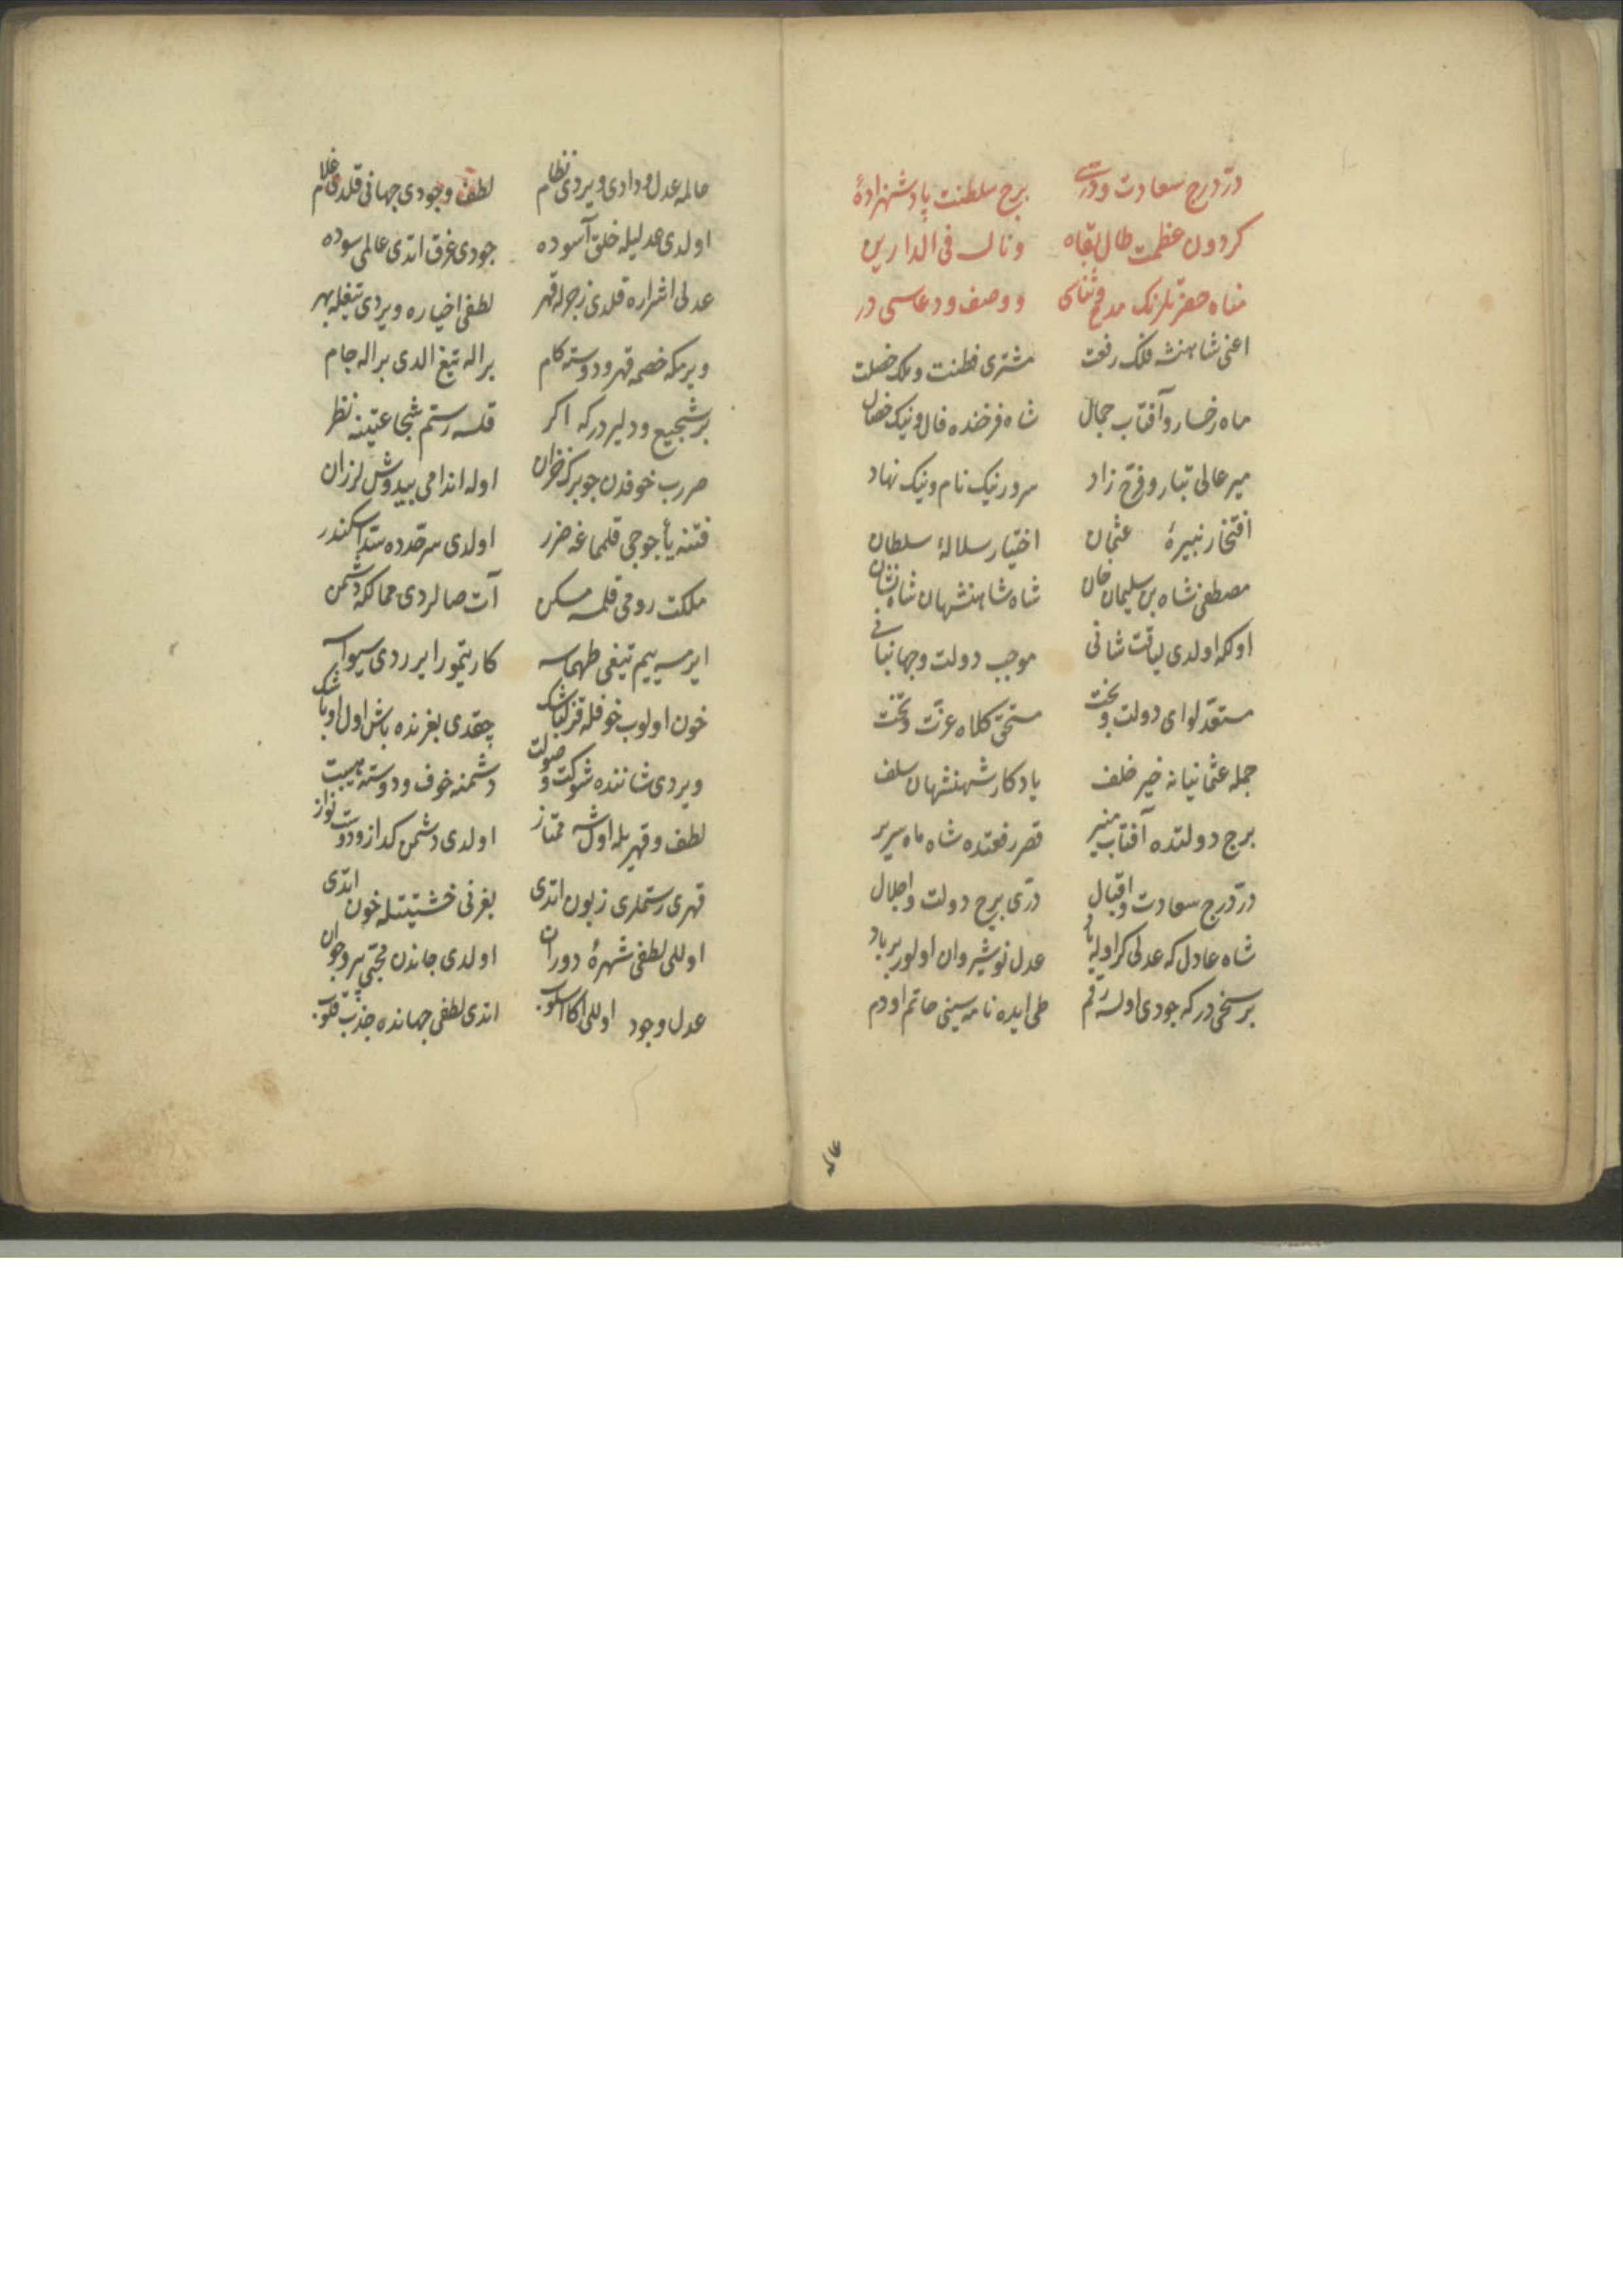 درّ درج سعادت و درّی برج سلطنت پادشهزادهٔ
کردون عظمت طال بقاه ونال فی الدارین
مناه حضرتلرنک مدح و ثنای و وصف و دعاسی در
اعنی شاهنشه فلک رفعت مشتری فطنت و ملک خصلت
ماه رخسار و آفتاب جمال شاه فرخنده فال و نیک خصال
میر عالی تبار و فرّخ زاد سرور نیک نام و نیک نهاد
افتخار نبیرهٔ عثمان اختیار سلالهٔ سلطان
مصطفی شاه بن سلیمان خان شاه شاهنشهان شاه نشان
اولکه اولدی لیاقت شانی موجب دولت و جهانبانی
مستعدّ لوای دولت و بخت مستحقّ کلاه عزّت و تخت
جمله عثمانیانه خیر خلف یادکار شهنشهان سلف
برج دولتده آفتاب منیر قصر رفعتده شاه ماه سریر
درّ درج سعادت و اقبال درّی برج دولت و اجلال
شاه عادل که عدلی کر اوله یاد عدل نوشیروان اولور برباد
بر سخی در که جودی اولسه رقم طی ایده نامه سینی حاتم اودم
عالمه
عالمه عدل و دادی ویردی نظام لطف و جودی جهانی قلدی غلام
اولدی عدلیله خلق آسوده جودی غرق اتدی عالمی سوده
عدلی اشراره قلدی زجرله قهر لطفی اخیاره ویردی تیغله بهر
ویرمکه خصمه قهر و دوسته کام بر اله تیغ الدی بر اله جام
بر شجیع و دلیر درکه اکر قلسه رستم شجاعتینه نظر
ضرب خوفدن چو برک خزان اوله اندامی بید وش لرزان
فتنه یأجوجی قلمماغه ضرر اولدی سرحدده سدّ اسکندر
ملکت رومی قلمسه مسکن آت صالردی ممالکه دشمن
ایرمسه بیم تیغی طهماسه کار تیمور ایرردی سیواسه
خون اولوب خوفله قزلباشک چقدی بغرنده باش اول اوباشک
ویردی شاننده شوکت و صولت دشمنه خوف و دوسته هیبت
لطف و قهریله اول شه ممتاز اولدی دشمن کداز و دوست نواز
قهری رستملری زبون اتدی بغرنی خشیتیله خون اتدی
اوللی لطفی شهرهٔ دوران اولدی جاندن محبّی پیر و جوان
عدل وجود اوللی اکا اسلوب اتدی لطفی جهانده جذب قلوب